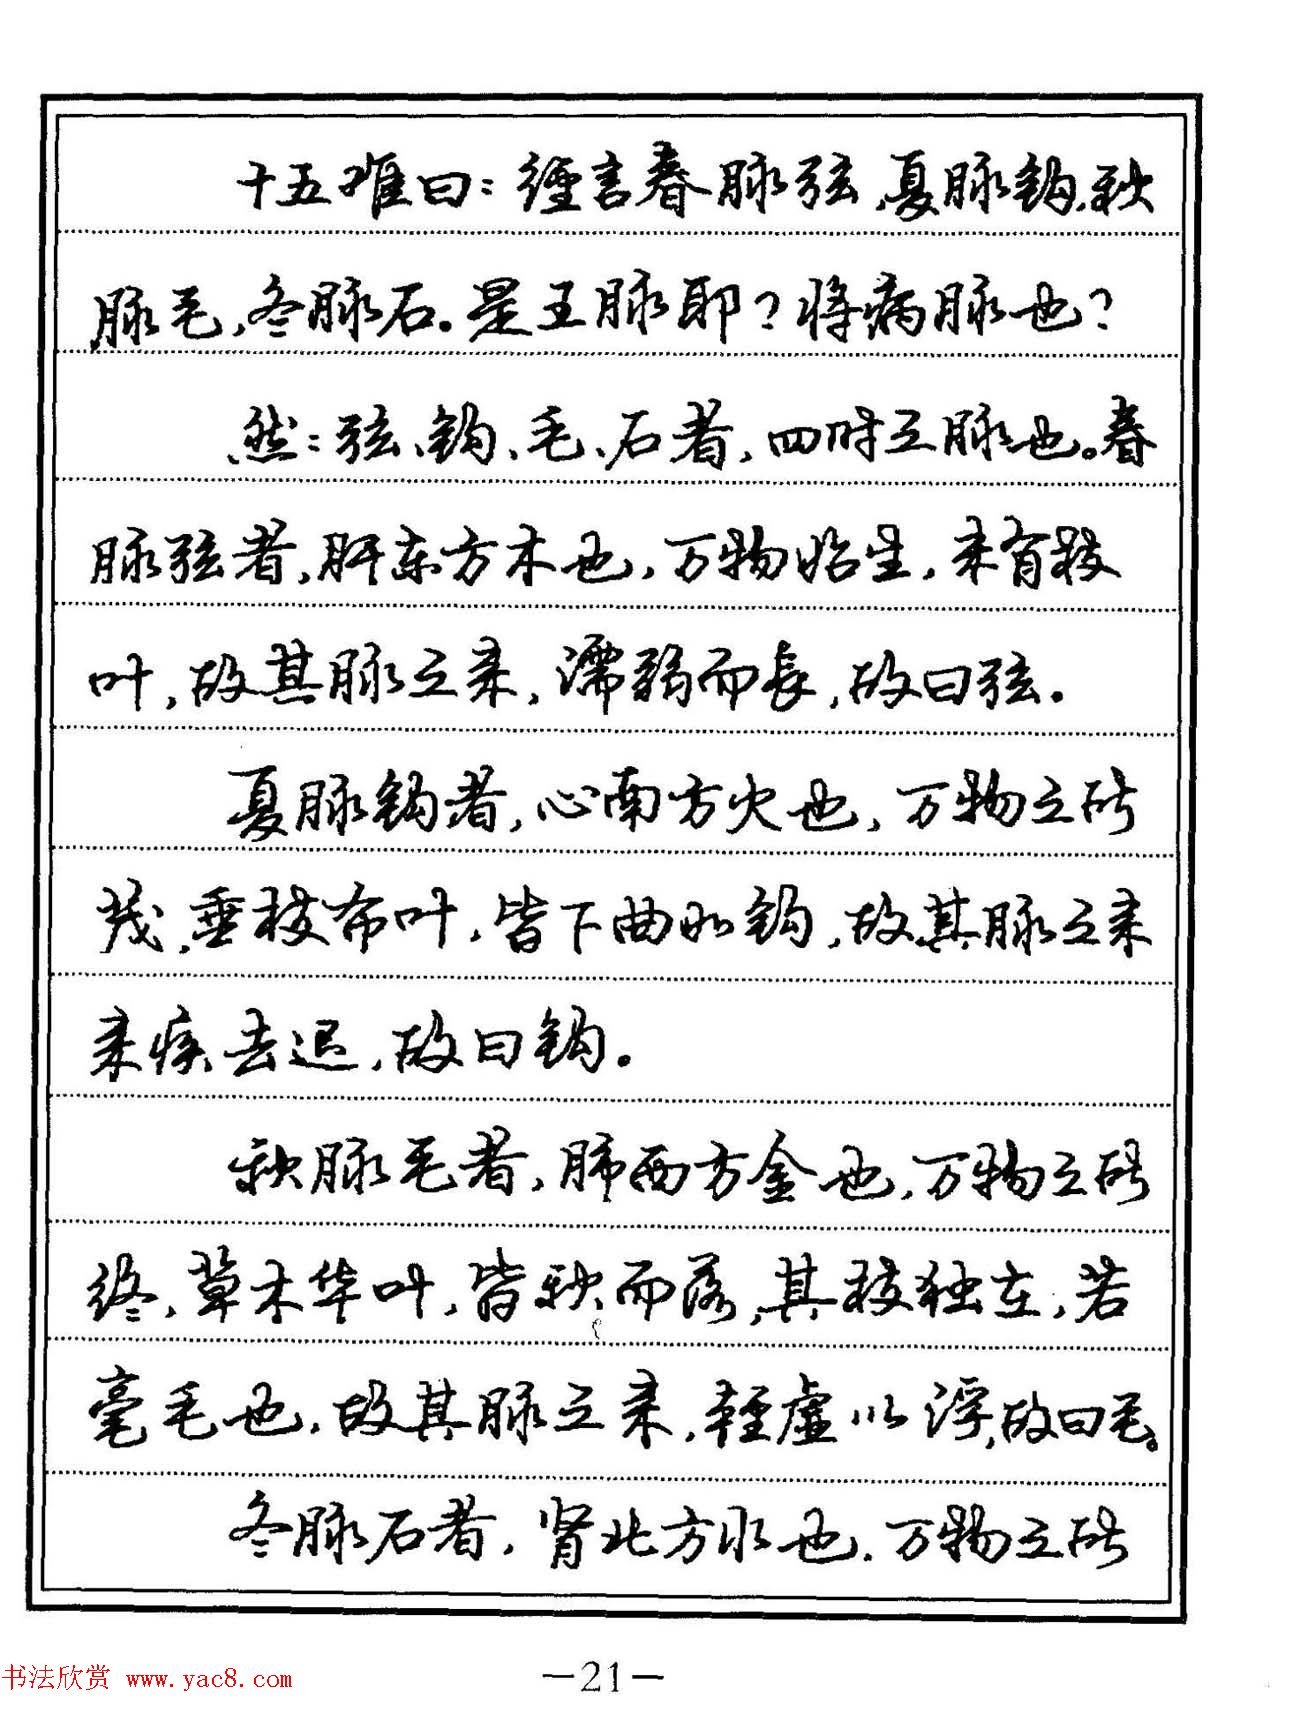 十五难曰：经言春脉弦，夏脉钩，秋
脉毛，冬脉石。是王脉耶？将病脉也？
然：弦、钩、毛、石者，四时之脉也。春
脉弦者，肝东方木也，万物始生，未有枝
叶，故其脉之来，濡弱而长，故曰弦。
夏脉钩者，心南方火也，万物之所
茂，垂枝布叶，皆下曲如钩，故其脉之来
来疾去迟，故曰钩。
秋脉毛者，肺西方金也，万物之所
终，草木华叶，皆秋而落，其枝独在，若
毫毛也，故其脉之来，轻虚以浮，故曰毛。
冬脉石者，肾北方水也，万物之所
书法欣赏 www.yac8.com
—21—